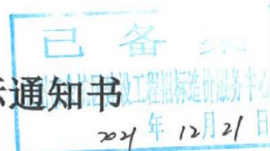 已备案
工程招标造价服务中心
标通知书
2021年12月21日